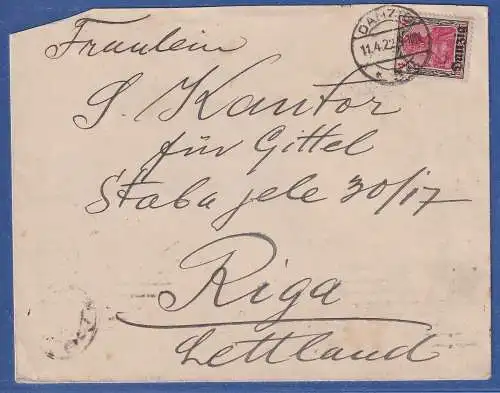 DANZIG
11.4.22
Danzig
Fraulein
S. Kantor
für Gittel
Staba jele 30/17
Riga
Lettland